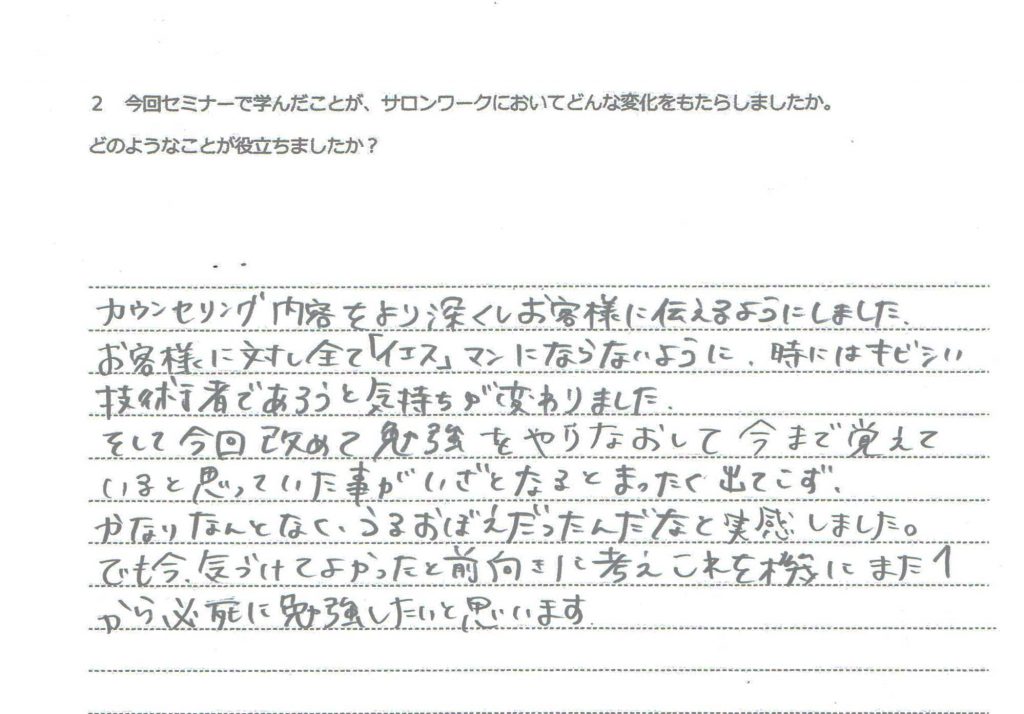 2 今回セミナーで学んだことが、サロンワークにおいてどんな変化をもたらしましたか。
どのようなことが役立ちましたか？
カウンセリング内容をより深くしお客様に伝えるようにしました、
お客様に対し全て「イエス」マンにならないように、時にはキビシい
技術者であろうと気持ちが変わりました、
そして今回改めて勉強をやりなおして今まで覚えて
いると思っていた事がいざとなるとまったく出てこず、
かなりなんとなく、うるおぼえだったんだなと実感しました。
でも今、気づけてよかったと前向きに考えこれを機にまた1
から必死に勉強したいと思います